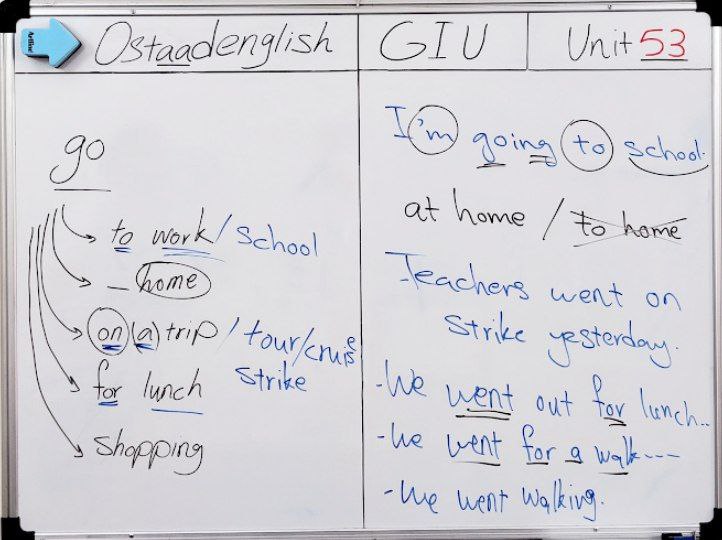 Ostaadenglish
GIU
Unit 53
go
to work / school
_ home
on (a) trip / tour/cruise
strike
for lunch
shopping
I'm going to school.
at home / to home
Teachers went on
strike yesterday.
- We went out for lunch..
- We went for a walk---
- We went walking.